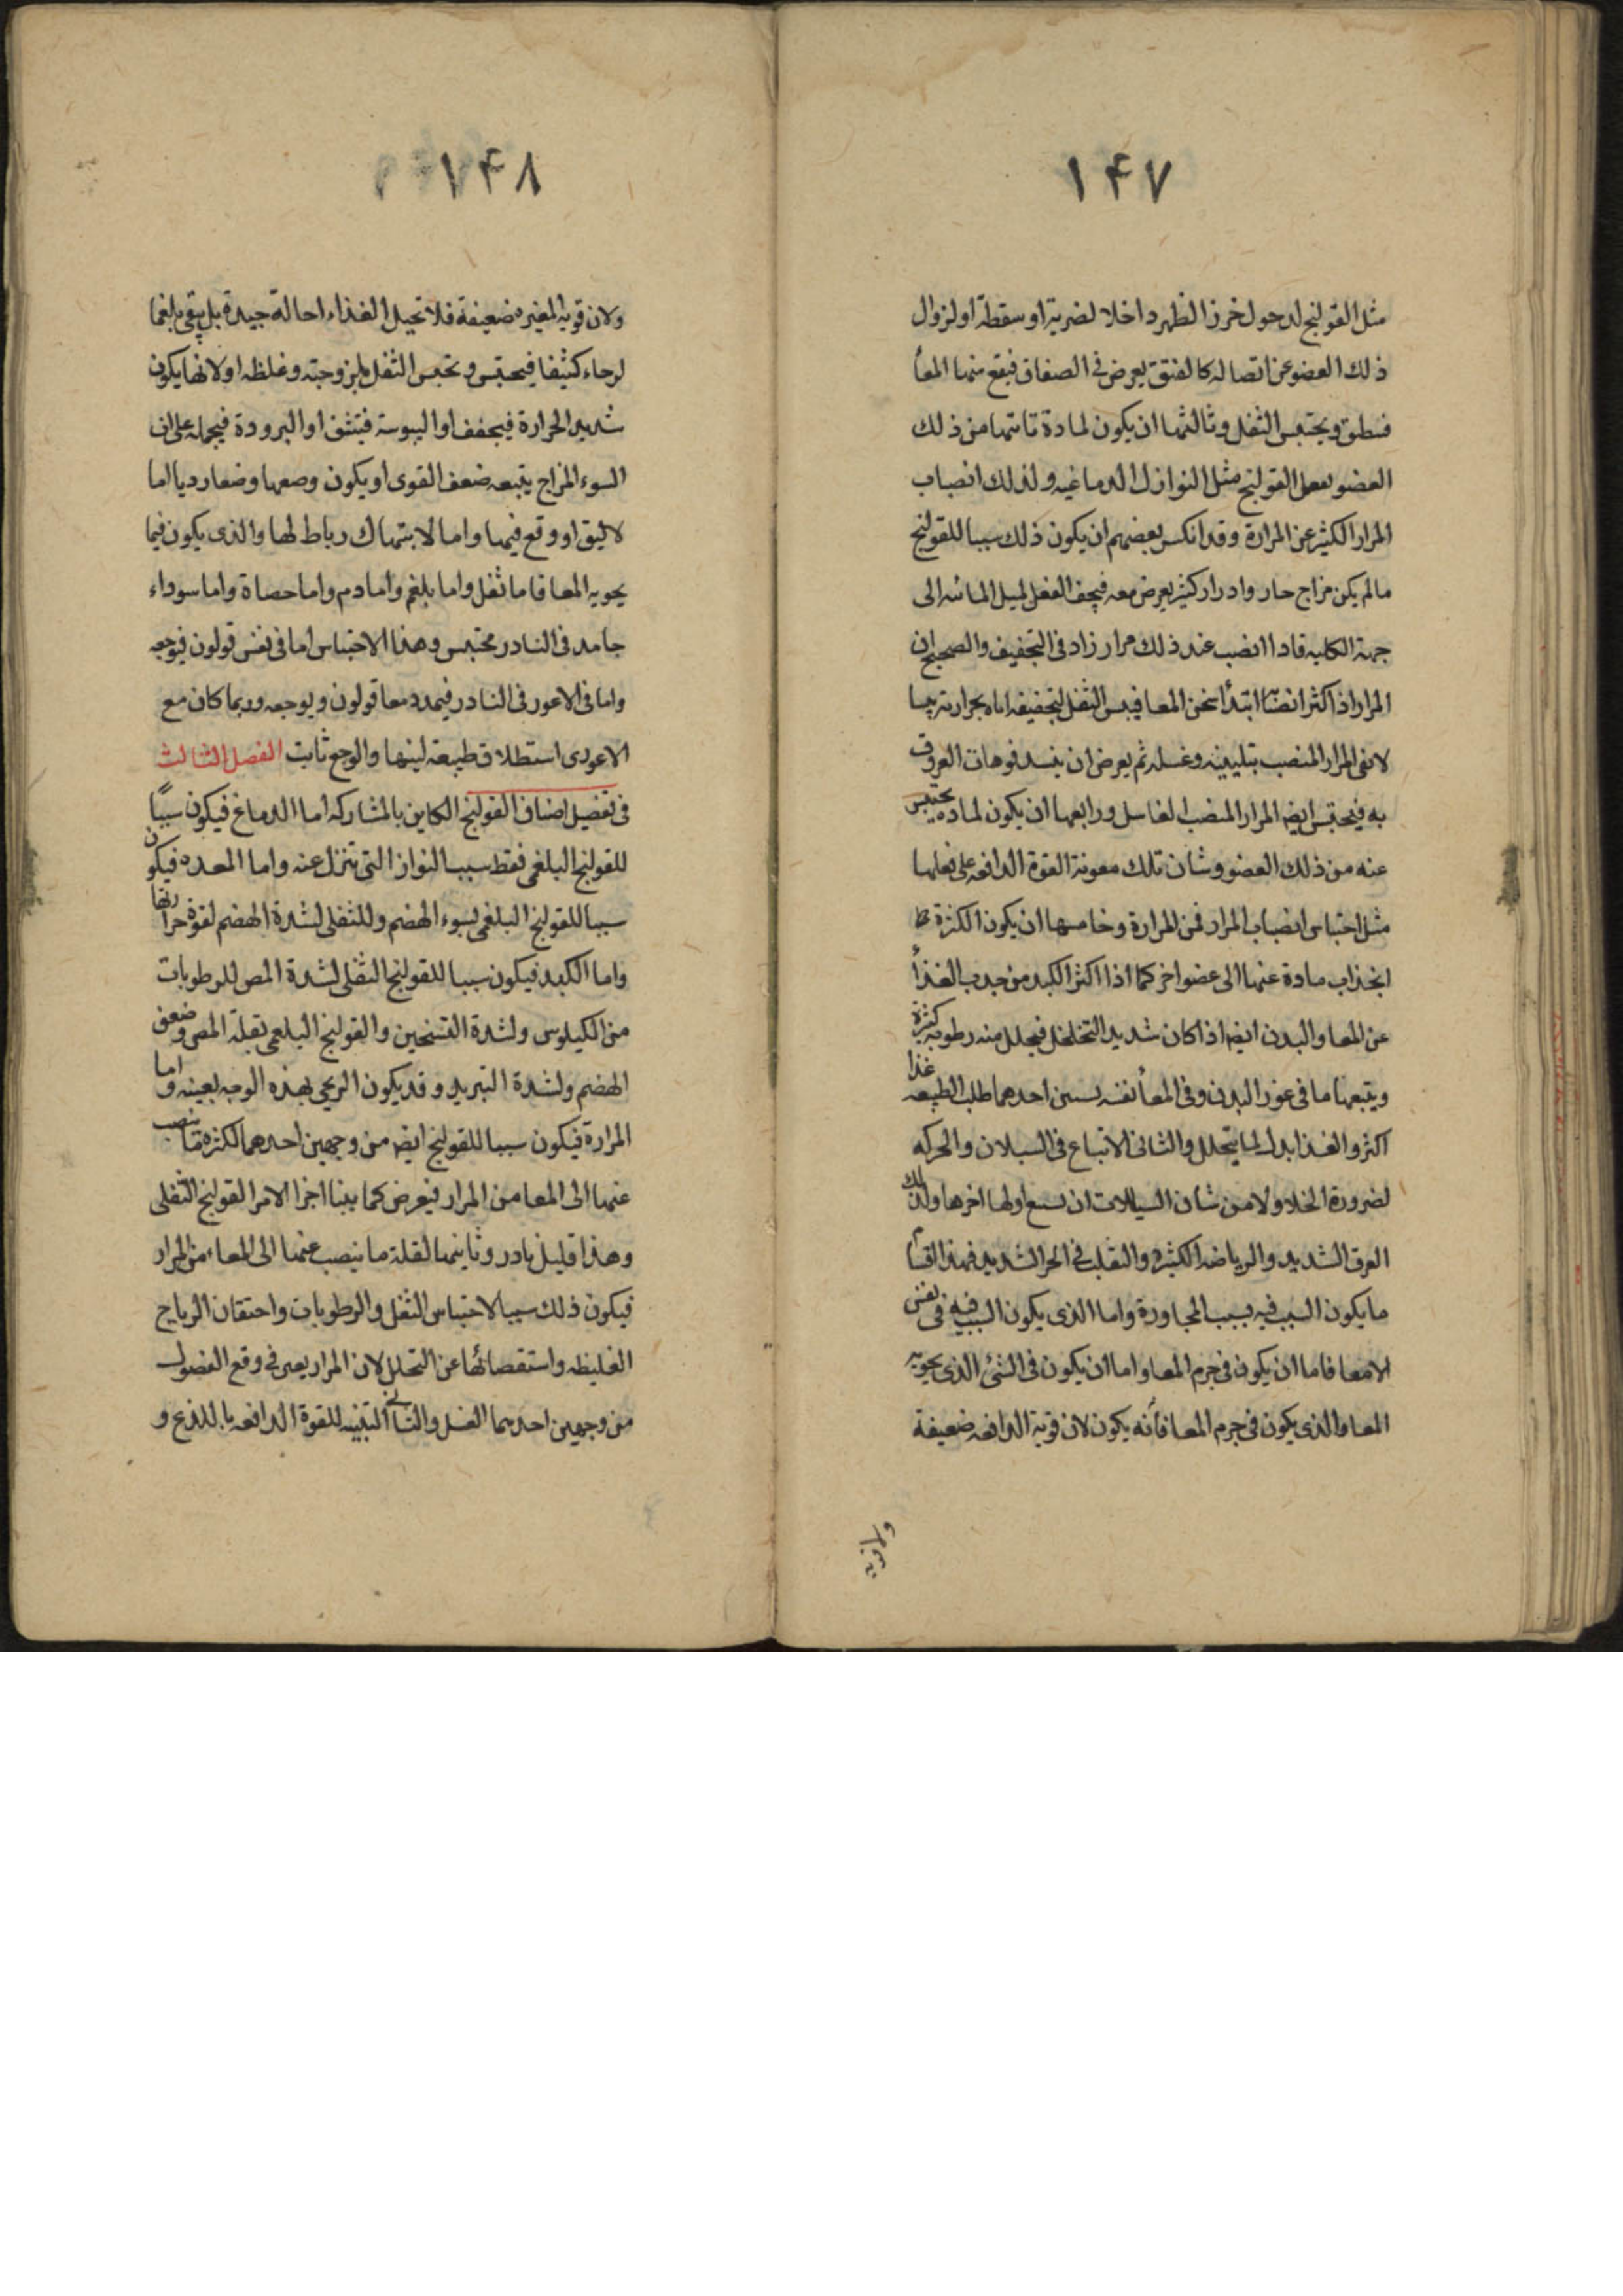 ١٤٧
مثل القولنج لدحول خرز الظهر داخلا لضربة او سقطة او لزوال
ذلك العضو عن اتصاله كالفتق يعرض فى الصفاق فيقع منها المعأ
فنطق ويحتبس الثفل وثالثها ان يكون لمادة تاتيها من ذلك
العضو بفعل القولنج مثل النوازل الدماغيه ولذلك انصباب
المرار الكثير عن المرارة وقد انكس بعضهم ان يكون ذلك سببا للقولنج
مالم يكن مزاج حار وادرار كثير يعرض معه فيجف الفعل لميل المائيه الى
جهة الكليه فاذا انضب عند ذلك مرار زاد فى التجفيف والصحيح ان
المرار اذا كثر انصبا ابتدأ سخن المعا فيبس الثفل لتجفيفه اياه بحرارته بيسا
لا نفى المرار المنصب بتليينه وغسله ثم يعرض ان ينسد فوهات العروق
به فيحتبس ايضا المرار المنصب لغاسل ورابعها ان يكون لمادة يحتبس
عنه من ذلك العضو وشان تلك معونة القوة الدافعه على فعلها
مثل احتباس انصباب المرار فمن المرارة وخامسها ان يكون الكثرة ط
انجذاب مادة عنها الى عضو اخر كما اذا اكثر الكبد من جذب الغذأ
عن المعا والبدن ايضا اذا كان شديد التخلخل فيحلل منه رطوبه كثيرة
ويتبعها ما فى غور البدن وفى المعأ نفسه لسببين احدهما طلب الطبيعه غذا
اكثر والغذا بدل لما يتحلل والثانى الاتباع فى السيلان والحركه
لضرورة الخلا ولا من شان السيالات ان يسبع اولها اخرها ولذلك
العرق الشديد والرياضه الكثيره والتقلب فى الحر الشديد فهذا القسم
ما يكون السبب فيه بسبب المجاورة واما الذى يكون السبب فيه فى نفس
الامعا فاما ان يكون فى جرم المعا واما ان يكون فى الشئ الذى يحويه
المعا والذى يكون فى جرم المعا فأنه يكون لان قوته الدافعه ضعيفة
ولان قويه
١٤٨
ولان قويه المغيره ضعيفة فلا تحيل الغذاء احالة جيدة بل يبقى بلغما
لزجاء كثيفا فيحتبس ويحتبس الثفل بلزوجته وغلظه او لانها يكون
شديد الحرارة فيجفف او اليبوسة فيتشنف او البرودة فيجمله على ان
السوء المزاج يتبعه ضعف القوى او يكون وصعها وضعا رديا اما
لا ليق او وقع فيها واما لا بتهاك رباط لها والذى يكون فيما
يحويه المعا فاما ثفل واما بلغم واما دم واما حصاة واما سوداء
جامد فى النادر محتبس وهذا الاحتباس اما فى نفس قولون فيوجعه
واما فى الاعور فى النادر فيمدد معا قولون ويوجعه وربما كان مع
الاعورى استطلاق طبيعة لينها والوجع ثابت الفصل الثالث
فى تفصيل اصناف القولنج الكاين بالمشاركه اما الدماغ فيكون سببًا
للقولنج البلغمى فقط سببا النواز التى تنزل عنه واما المعده فيكون
سببا للقولنج البلغمى لسوء الهضم وللثفلى لشدة الهضم لقوة حرارتها
واما الكبد فيكون سببا للقولنج الثفلى لشدة المص للرطوبات
من الكيلوس ولشدة التسخين والقولنج البلغمى بقلة المص وضعف
الهضم ولشدة التبريد وقد يكون الريحى بهذه الوجه بعينه واما
المرارة فيكون سببا للقولنج ايضا من وجهين احدهما لكثرة ما ينصب
عنها الى المعا من المرار فيعرض كما بينا اخرا الامر القولنج الثفلى
وهذا قليل نادر وثانيهما لقلة ما ينصب عنها الى المعاء من المرار
فيكون ذلك سببا لاحتباس الثفل والرطوبات واحتقان الرياح
الغليظه واستقصائها عن التحلل لان المرار يعين فى دفع الفضول
من وجهين احدهما الغسل والثانى التنبيه للقوة الدافعه باللذع و